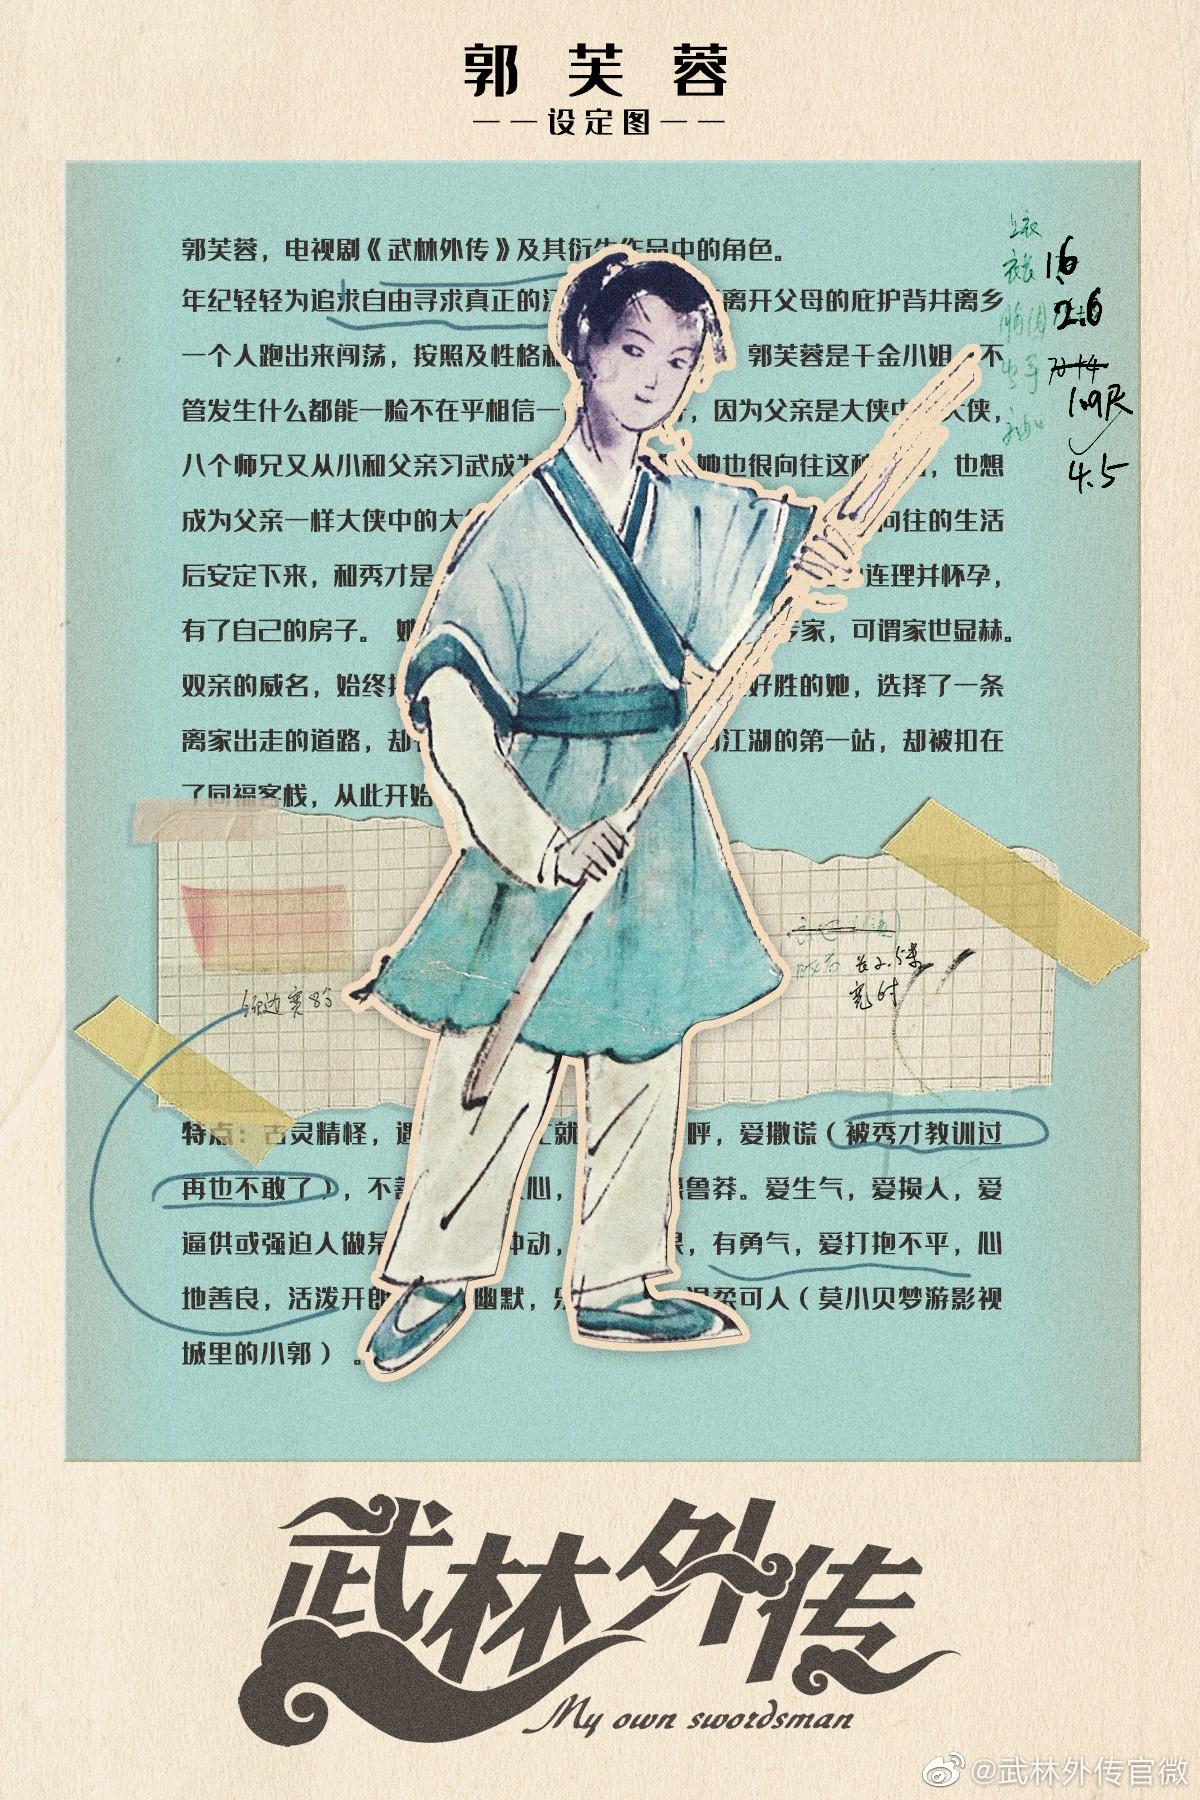 郭芙蓉
——设定图——
郭芙蓉，电视剧《武林外传》及其衍生作品中的角色。
年纪轻轻为追求自由寻求真正的 离开父母的庇护背井离乡
一个人跑出来闯荡，按照及性格 郭芙蓉是千金小姐，不
管发生什么都能一脸不在乎相信一 ，因为父亲是大侠中 大侠，
八个师兄又从小和父亲习武成为 她也很向往这种 ，也想
成为父亲一样大侠中的大 向往的生活
后安定下来，和秀才是 连理并怀孕，
有了自己的房子。 她 专家，可谓家世显赫。
双亲的威名，始终 好胜的她，选择了一条
离家出走的道路，却 江湖的第一站，却被扣在
了同福客栈，从此开始
上衣
衣长 1.6
胸围 2.6
1.9尺
4.5
长2.5米
宽8寸
特点：古灵精怪，遇 就 呼，爱撒谎（被秀才教训过
再也不敢了），不善 心， 鲁莽。爱生气，爱损人，爱
逼供或强迫人做 冲动， ，有勇气，爱打抱不平，心
地善良，活泼开朗 幽默， 温柔可人（莫小贝梦游影视
城里的小郭）。
武林外传
My own swordsman
@武林外传官微